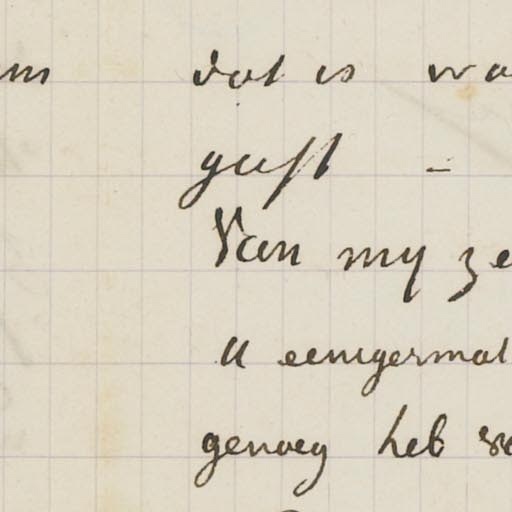 dat is
gust -
Van my ze
U eenigermat
genoeg heb